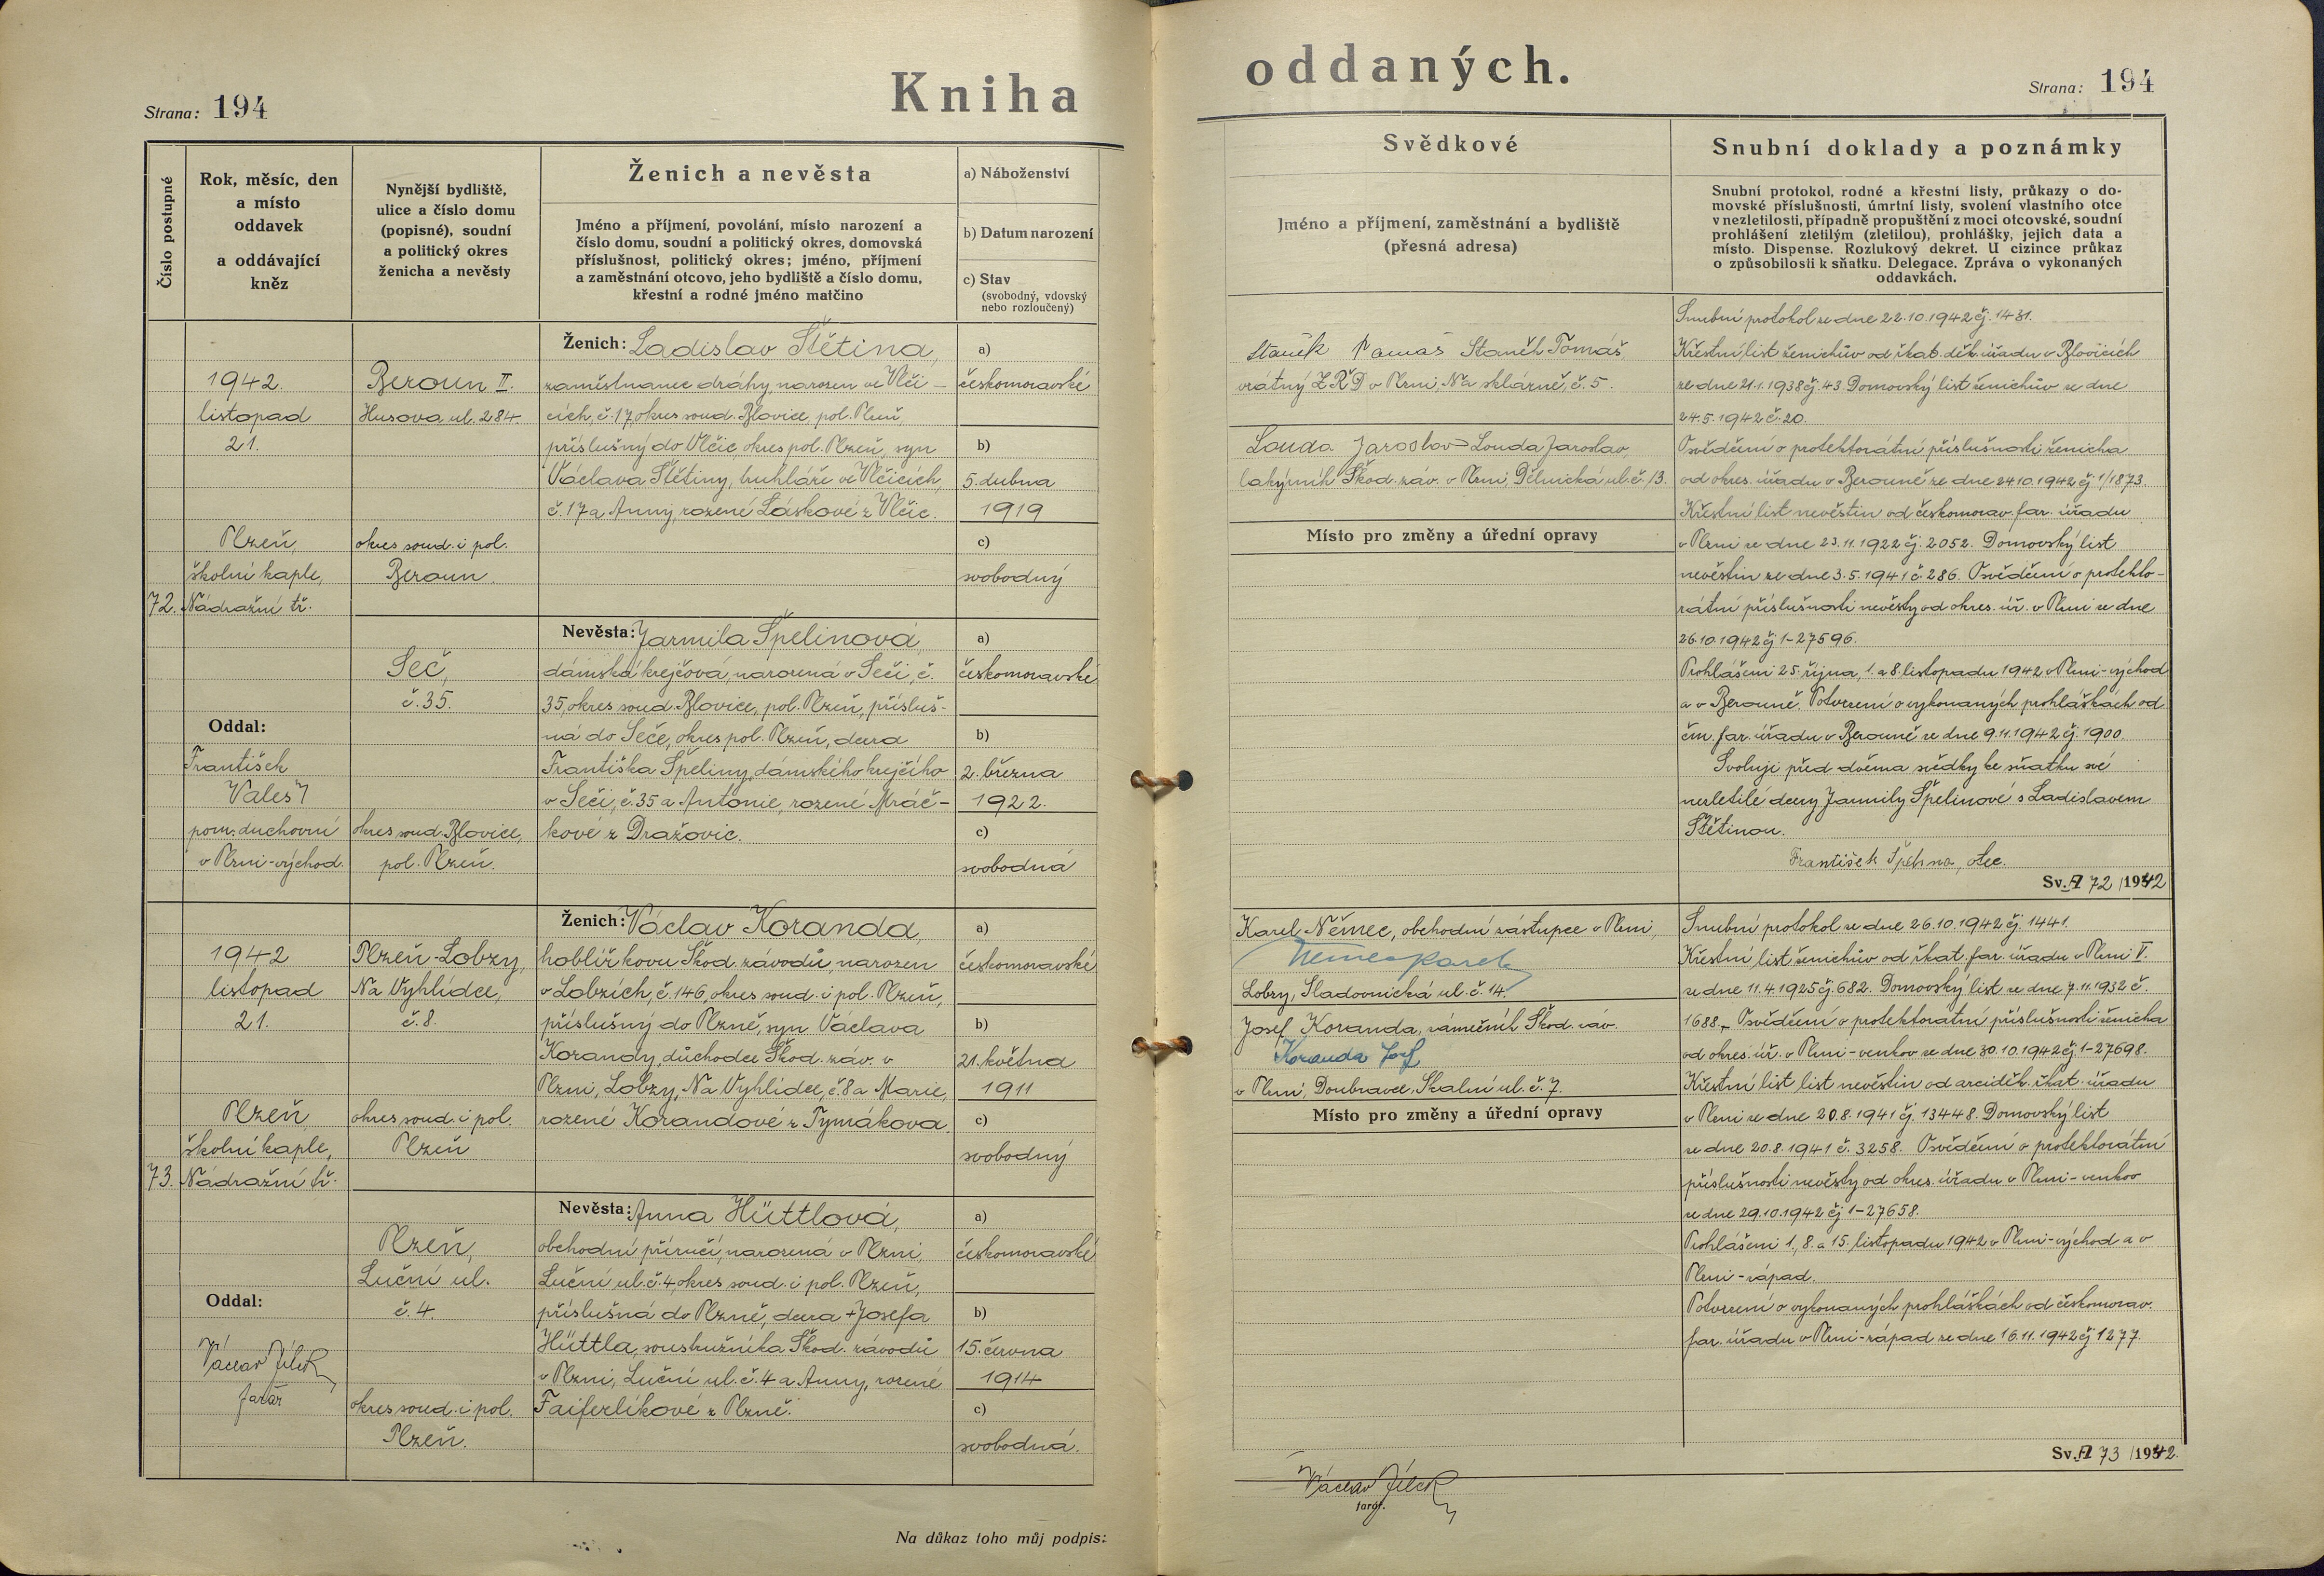 Strana: 194
Kniha
oddaných.
Strana: 194
Číslo postupné
Rok, měsíc, den
a místo
oddavek
a oddávající
kněz
Nynější bydliště,
ulice a číslo domu
(popisné), soudní
a politický okres
ženicha a nevěsty
Ženich a nevěsta
Jméno a příjmení, povolání, místo narození a
číslo domu, soudní a politický okres, domovská
příslušnost, politický okres; jméno, příjmení
a zaměstnání otcovo, jeho bydliště a číslo domu,
křestní a rodné jméno matčino
a) Náboženství
b) Datum narození
c) Stav
(svobodný, vdovský
nebo rozloučený)
Svědkové
Jméno a příjmení, zaměstnání a bydliště
(přesná adresa)
Snubní doklady a poznámky
Snubní protokol, rodné a křestní listy, průkazy o do-
movské příslušnosti, úmrtní listy, svolení vlastního otce
v nezletilosti, případně propuštění z moci otcovské, soudní
prohlášení zletilým (zletilou), prohlášky, jejich data a
místo. Dispense. Rozlukový dekret. U cizince průkaz
o způsobilosti k sňatku. Delegace. Zpráva o vykonaných
oddavkách.
72.
1942.
listopad
21.
Plzeň,
školní kaple,
Nádražní tř.
Oddal:
František
Valeš
pom. duchovní
v Plzni-východ.
Beroun II.
Husova ul. 284.
okres soud. i pol.
Beroun.
Seč,
č. 35.
okres soud. Blovice,
pol. Plzeň.
Ženich: Ladislav Štětina,
zaměstnanec dráhy, narozen ve Vlči-
cích, č. 17, okres soud. Blovice, pol. Plzeň,
příslušný do Vlčic, okres pol. Plzeň, syn
Václava Štětiny, truhláře ve Vlčicích,
č. 17 a Anny, rozené Láskové z Vlčic.
a)
českomoravské
b)
5. dubna
1919
c)
svobodný
Nevěsta: Jarmila Špelinová
dámská krejčová, narozená v Seči, č.
35, okres soud. Blovice, pol. Plzeň, přísluš-
ná do Seče, okres pol. Plzeň, dcera
Františka Špeliny, dámského krejčího
v Seči, č. 35 a Antonie, rozené Mráč-
kové z Dražovic.
a)
českomoravské
b)
2. března
1922.
c)
svobodná
Staněk Tomáš Staněk Tomáš
vrátný Z.Ř.D v Plzni, Na sklárně, č. 5.
Louda Jaroslav Louda Jaroslav
lakýrník Škod. záv. v Plzni, Dělnická ul. č. 13.
Místo pro změny a úřední opravy
Snubní protokol ze dne 22.10.1942 čj. 1431.
Křestní list ženichův od řkat. děk. úřadu v Blovicích
ze dne 21.1.1938 čj. 43. Domovský list ženichův ze dne
24.5.1942 č. 20.
Osvědčení o protektorátní příslušnosti ženicha
od okres. úřadu v Berouně ze dne 24.10.1942 čj. 1/1873.
Křestní list nevěstin od českomorav. far. úřadu
v Plzni ze dne 23.11.1922 čj. 2052. Domovský list
nevěstin ze dne 3.5.1941 č. 286. Osvědčení o protekto-
rátní příslušnosti nevěsty od okres. úř. v Plzni ze dne
26.10.1942 čj 1-27596.
Prohlášeni 25. října, 1. a 8. listopadu 1942 v Plzni-východ
a v Berouně. Potvrzení o vykonaných prohláškách od
čm. far. úřadu v Berouně ze dne 9.11.1942 čj. 1900.
Svoluji před dvěma svědky ke sňatku své
nezletilé dcery Jarmily Špelinové s Ladislavem
Štětinou.
František Špelina, otec.
Sv. A 72 /1942
73.
1942
listopad
21.
Plzeň
školní kaple,
Nádražní tř.
Oddal:
Václav Jílek
farář
Plzeň-Lobzy,
Na Vyhlídce,
č. 8.
okres soud. i pol.
Plzeň
Plzeň,
Luční ul.
č. 4.
okres soud. i pol.
Plzeň.
Ženich: Václav Koranda,
hoblíř kovu Škod. závodů, narozen
v Lobzích, č. 146, okres soud. i pol. Plzeň,
příslušný do Plzně, syn Václava
Korandy, důchodce Škod. záv. v
Plzni, Lobzy, Na Vyhlídce, č. 8 a Marie,
rozené Korandové z Tymákova.
a)
českomoravské
b)
21. května
1911
c)
svobodný
Nevěsta: Anna Hüttlová,
obchodní příručí, narozená v Plzni,
Luční ul. č. 4, okres soud. i pol. Plzeň,
příslušná do Plzně, dcera +Josefa
Hüttla, soustružníka Škod. závodů
v Plzni, Luční ul. č. 4 a Anny, rozené
Faiferlíkové z Plzně.
a)
českomoravské
b)
15. června
1914
c)
svobodná.
Karel Němec, obchodní zástupce v Plzni,
Němec Karel
Lobzy, Sladovnická ul. č. 14.
Josef Koranda, zámečník Škod. záv.
Koranda Josef
v Plzni, Doubravce, Skalní ul. č. 7.
Místo pro změny a úřední opravy
Snubní protokol ze dne 26.10.1942 čj. 1441.
Křestní list ženichův od řkat. far. úřadu v Plzni V.
ze dne 11.4.1925 čj. 682. Domovský list ze dne 7.11.1932 č.
1688. Osvědčení o protektorátní příslušnosti ženicha
od okres. úř. v Plzni-venkov ze dne 30.10.1942 čj. 1-27698.
Křestní list list nevěstin od arciděk. řkat. úřadu
v Plzni ze dne 20.8.1941 čj. 13448. Domovský list
ze dne 20.8.1941 č. 3258. Osvědčení o protektorátní
příslušnosti nevěsty od okres. úřadu v Plzni-venkov
ze dne 29.10.1942 čj 1-27658.
Prohlášeni 1., 8. a 15. listopadu 1942 v Plzni-východ a v
Plzni-západ.
Potvrzení o vykonaných prohláškách od českomorav.
far. úřadu v Plzni-západ ze dne 16.11.1942 čj 1277.
Sv. A 73 /1942.
Na důkaz toho můj podpis:
Václav Jílek
farář.